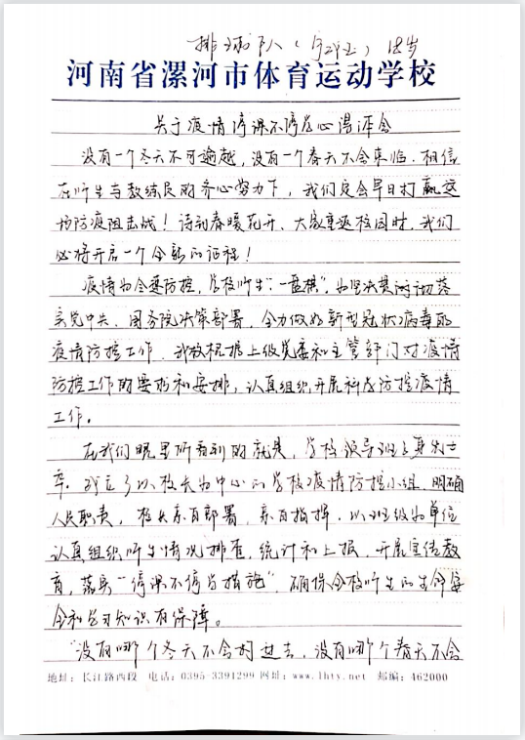 排球队（ ）18岁
河南省漯河市体育运动学校
关于疫情停课不停学心得体会
没有一个冬天不可逾越，没有一个春天不会来临。相信
在师生与教练员的齐心努力下，我们定会早日打赢这
场防疫阻击战！待到春暖花开、大家重返校园时，我们
必将开启一个全新的征程！
疫情当全要防控，学校师生“一盘棋”，为坚决贯彻落
实党中央、国务院决策部署，全力做好新型冠状病毒的
疫情防控工作，我校根据上级党委和主管部门对疫情
防控工作的要求和安排，认真组织开展科学防控疫情
工作。
在我们眼里所看到的就是，学校领导班子身先士
卒，成立了以校长为中心的学校疫情防控小组，明确
人民职责，校长亲自部署，亲自指挥，以班级为单位
认真组织师生情况排查，统计和上报，开展宣传教
育，落实“停课不停学措施”，确保全校师生的生命安
全和学习知识有保障。
“没有哪个冬天不会过去，没有哪个春天不会
地址：长江路西段 电话：0395-3391299 网址：www.lhty.net 邮编：462000